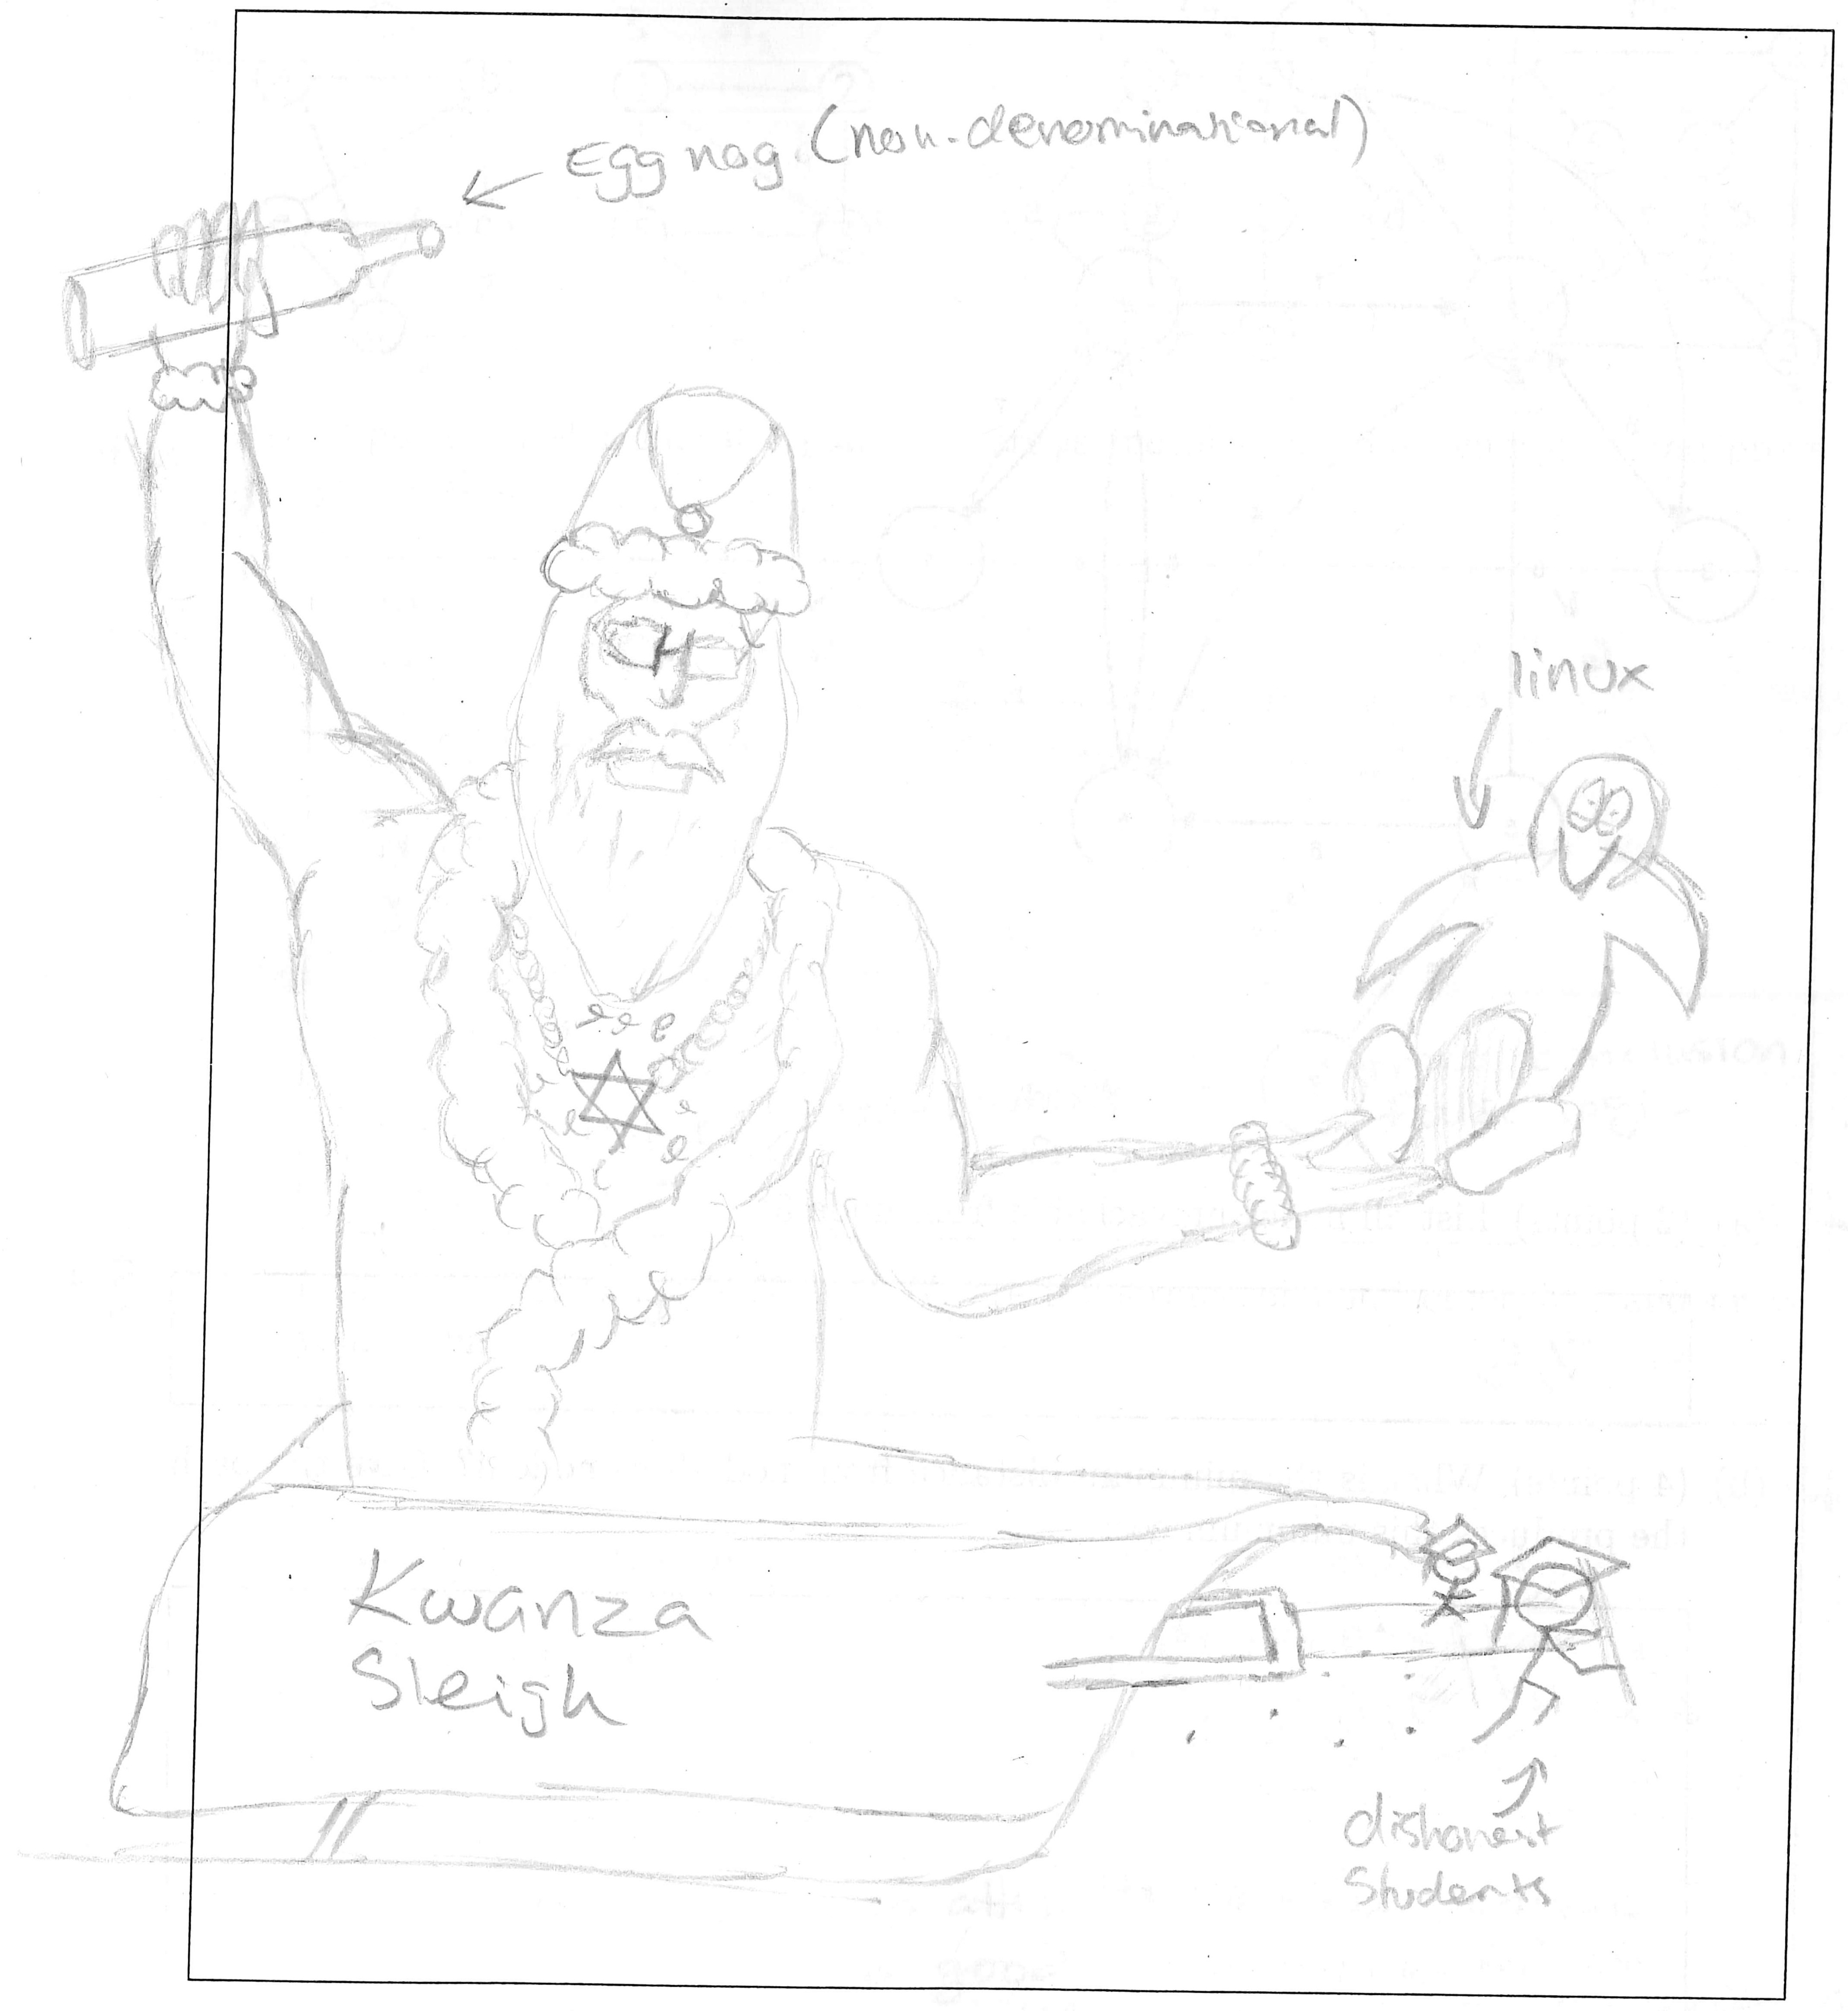 Egg nog (non-denominational)
linux
Kwanza
Sleigh
dishonest
Students